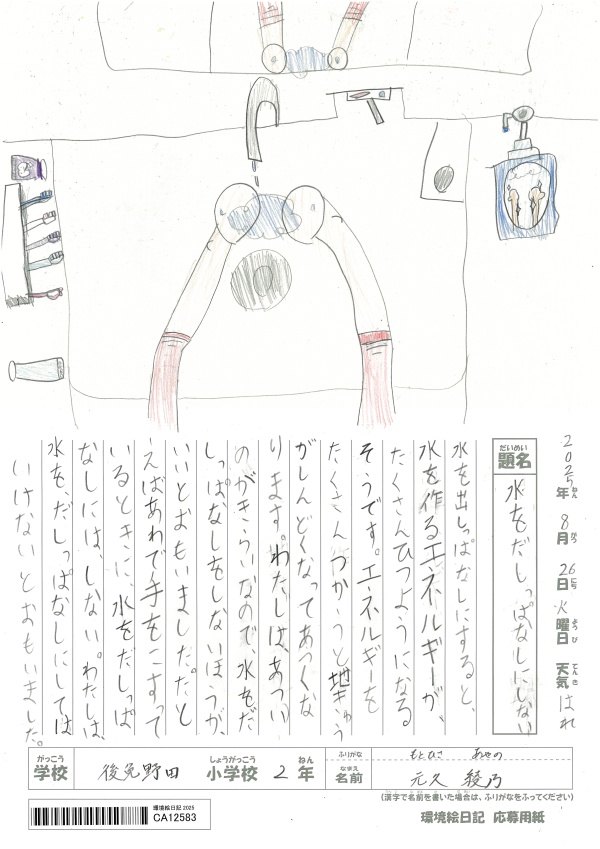 2025年ねん 8月がつ 26日にち 火曜日ようび 天気てんき はれ
だいめい
題名 水をだしっぱなしにしない
水を出しっぱなしにすると、
水を作るエネルギーが、
たくさんひつようになる
そうです。エネルギーを
たくさんつかうと地きゅう
がしんどくなってあつくな
ります。わたしは、あつい
のがきらいなので、水をだ
しっぱなしをしないほうが、
いいとおもいました。たと
えばあわで手をこすって
いるときに、水をだしっぱ
なしには、しない。わたしは、
水を、だしっぱなしにしては
いけないとおもいました。
がっこう
学校 後免野田
しょうがっこう
小学校 2 ねん 年
ふりがな もとひさ あやの
なまえ
名前 元久 綾乃
(漢字で名前を書いた場合は、ふりがなをふってください)
環境絵日記 2025
CA12583
環境絵日記 応募用紙